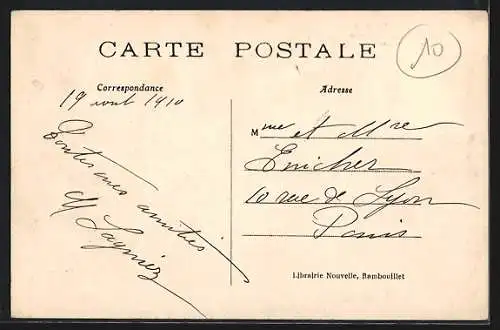 CARTE POSTALE
10
Correspondance
Adresse
19 aout 1910
Toutes mes amitiés
M Lagniez
Mme et Mre
Enicher
10 rue de Lyon
Paris
Librairie Nouvelle, Rambouillet